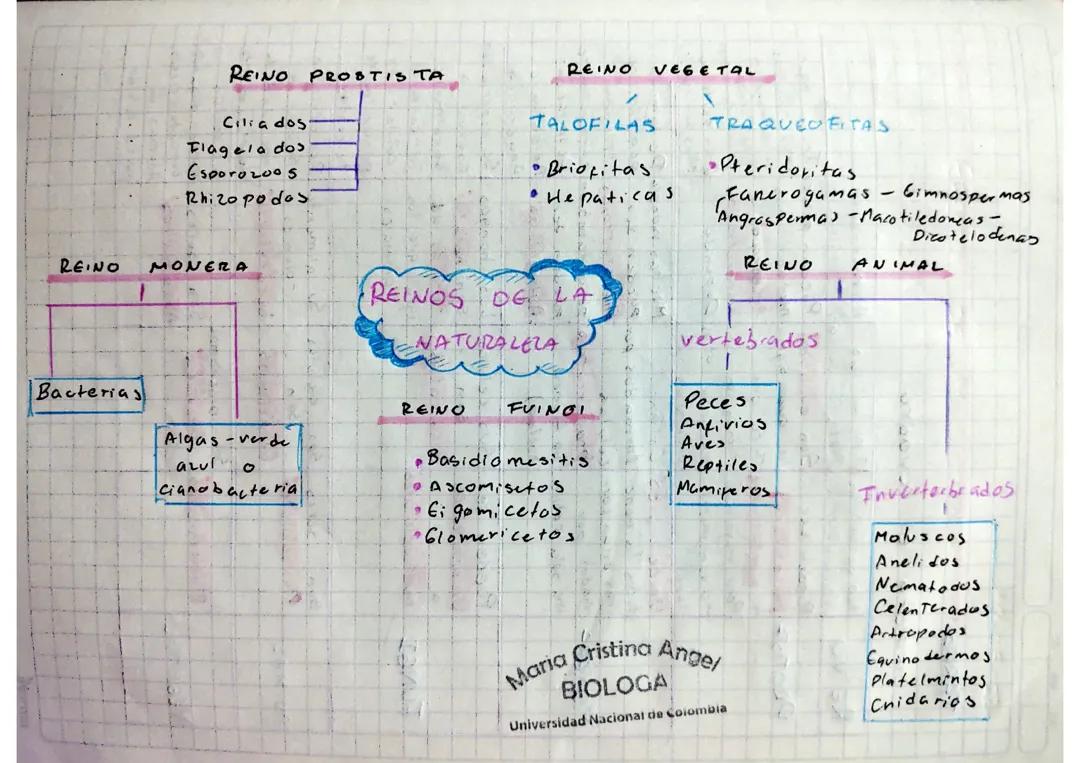 REINO PROSTISTA
Ciliados
Flagelados
Esporozoos
Rhizopodos
REINO VEGETAL
TALOFILAS
• Briofitas
• Hepaticas
TRAQUEOFITAS
• Pteridofitas
Fanerogamas - Gimnospermas
Angrospermas - Macotiledoneas -
Dicotelodenas
REINO MONERA
Bacterias
Algas - verde
azul o
cianobacteria
REINOS DE LA
NATURALEZA
REINO FUINGI
• Basidiomesitis
• Ascomisetos
• Eigomicetos
• Glomericetos
REINO ANIMAL
vertebrados
Peces
Anfivios
Aves
Reptiles
Mamiferos
Invertorbrados
Moluscos
Anelidos
Nematodos
Celenterados
Artropodos
Equinodermos
Platelmintos
Cnidarios
Maria Cristina Angel
BIOLOGA
Universidad Nacional de Colombia